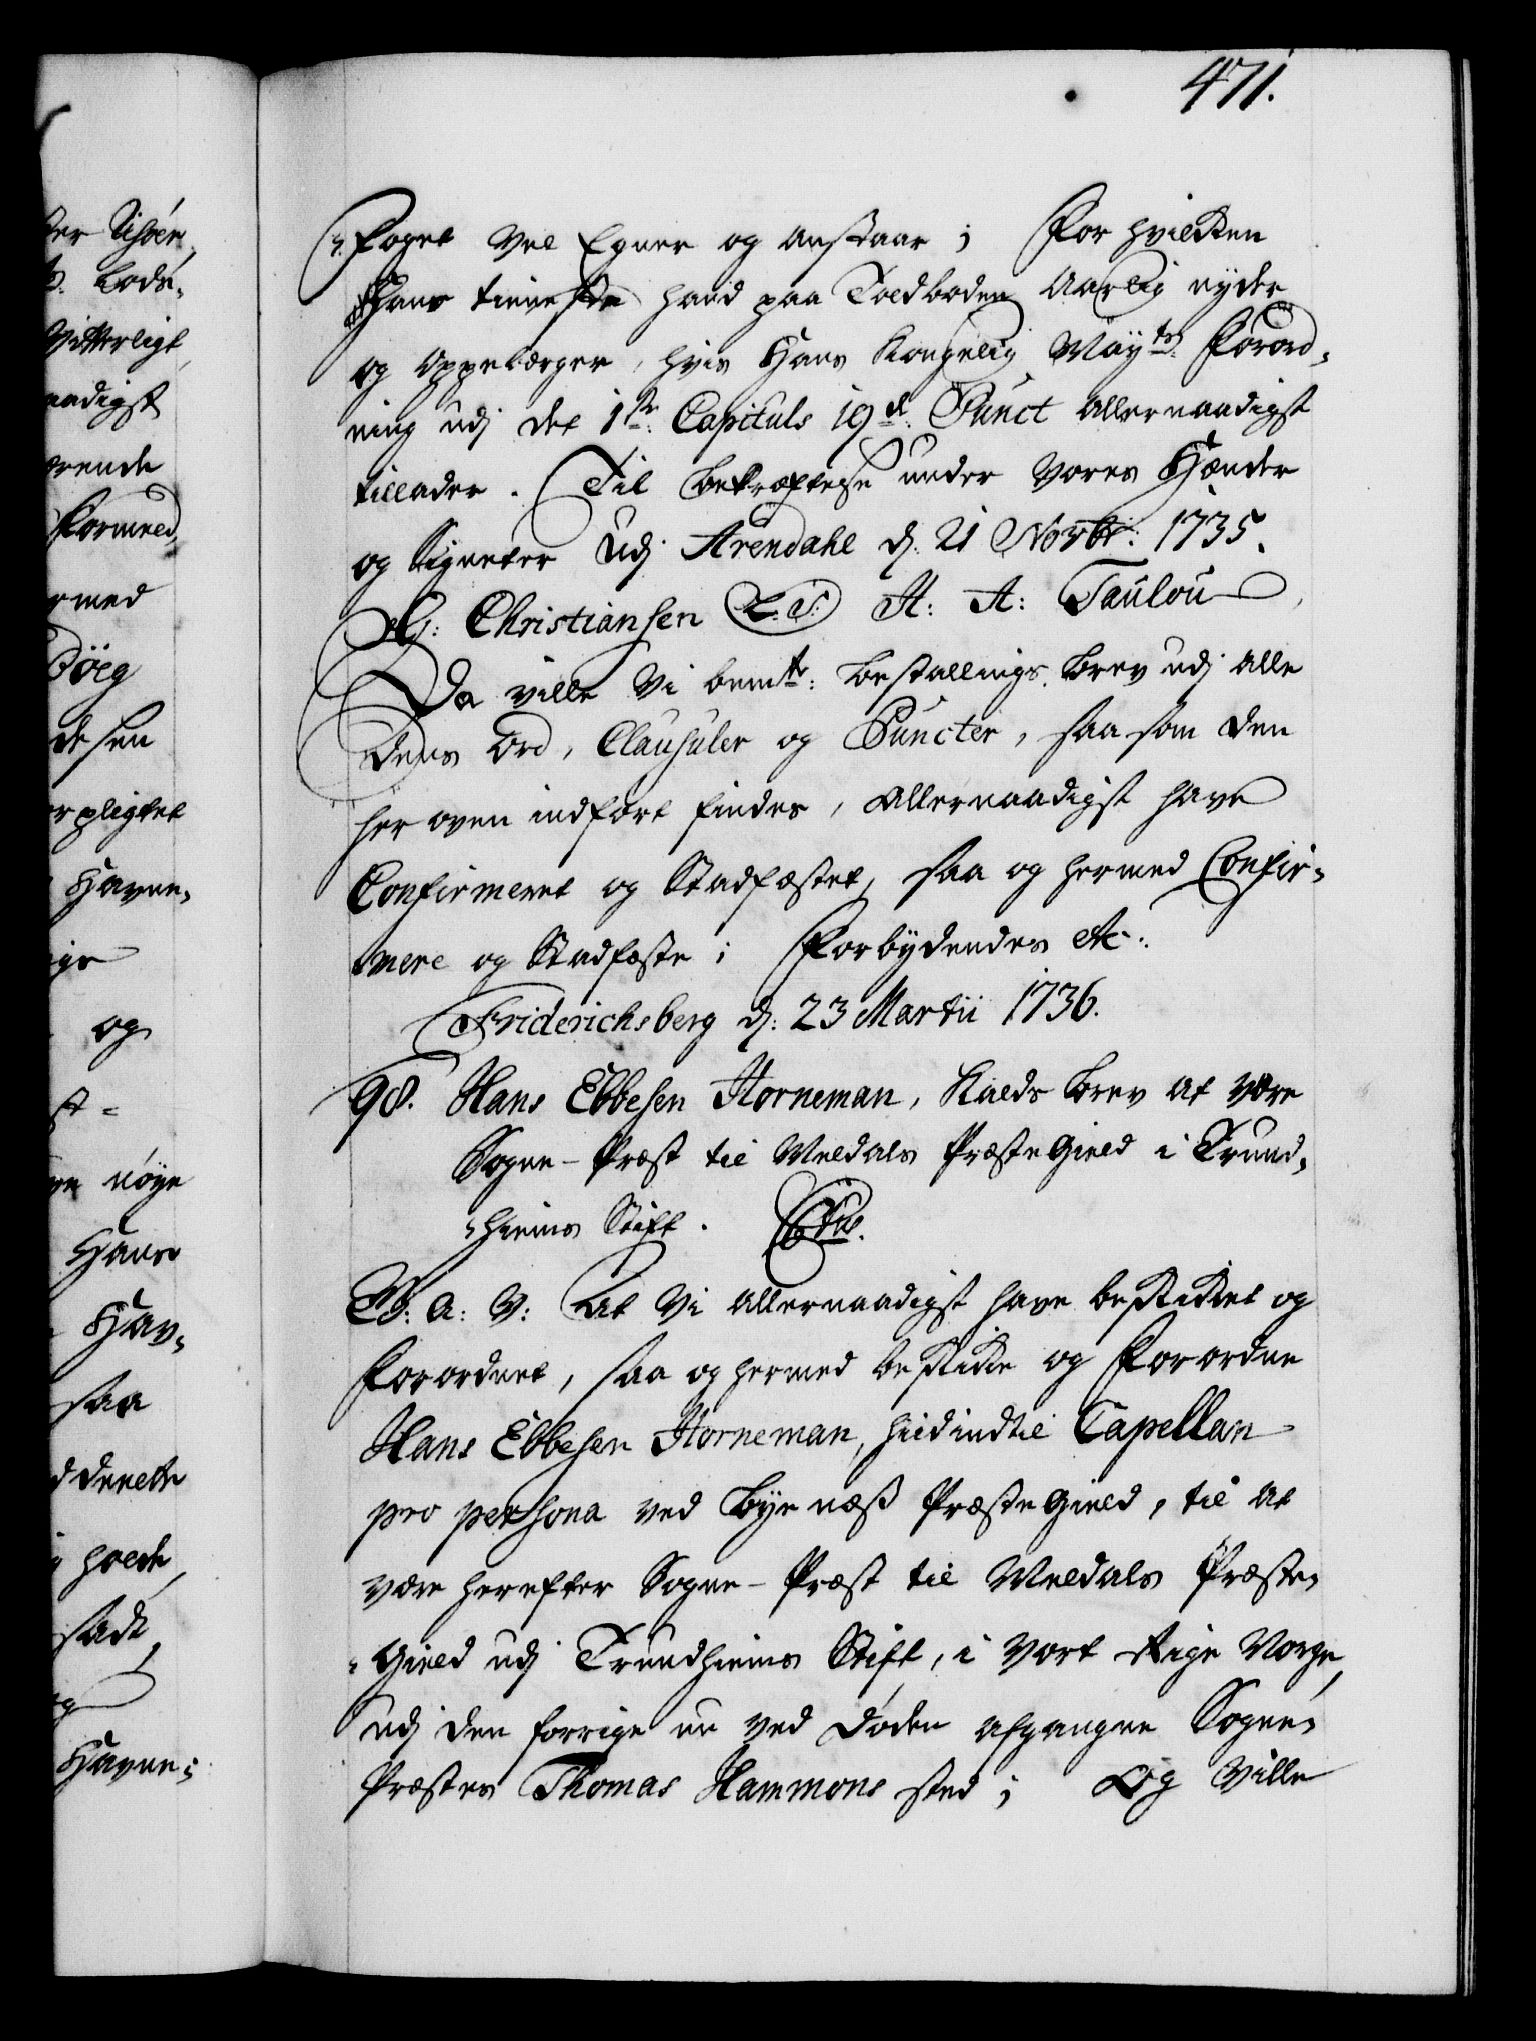 471.
Foget vel Egner og anstaar; For hvilken
Hans tieneste hand paa Toldboden Aarlig nyder
og oppebærger, hvis Hans Kongelig May<sup>ts</sup>: Forord-
ning udj det 1<sup>te</sup>: Capituls 19<sup>d</sup>: Punct allernaadigst
tillader. Til bekræftelse under vores Hænder
og Signeter Udj Arendahl d: 21 Novbr: 1735.
Christiansen L. S: A: A: Taulou
Da ville Vi bem<sup>te</sup>: Bestallings-Brev udj alle
Dens Ord, Clausuler og Puncter, saa som den
her oven indført findes, allernaadigst have
Confirmeret og Stadfæstet, saa og hermed Confir-
mere og Stadfæste; Forbydendes etc:
Friderichsberg d: 23 Martii 1736.
98. Hans Ebbesen Horneman, Kalds brev at være
Sogne-Præst til Meldals Præstegield i Trund-
hiems Stift.
G: A: V: At Vi allernaadigst have beskikket og
forordnet, saa og hermed beskikke og forordne
Hans Ebbesen Horneman, hidindtil Capellan
pro persona ved Byenæs Præstegield, til at
være herefter Sogne-Præst til Meldals Præste-
Gield udj Trundhiems Stift, i Vort Rige Norge,
udj den forrige nu ved døden afgangne Sogne-
Præstes Thomas Hammons sted; Og ville